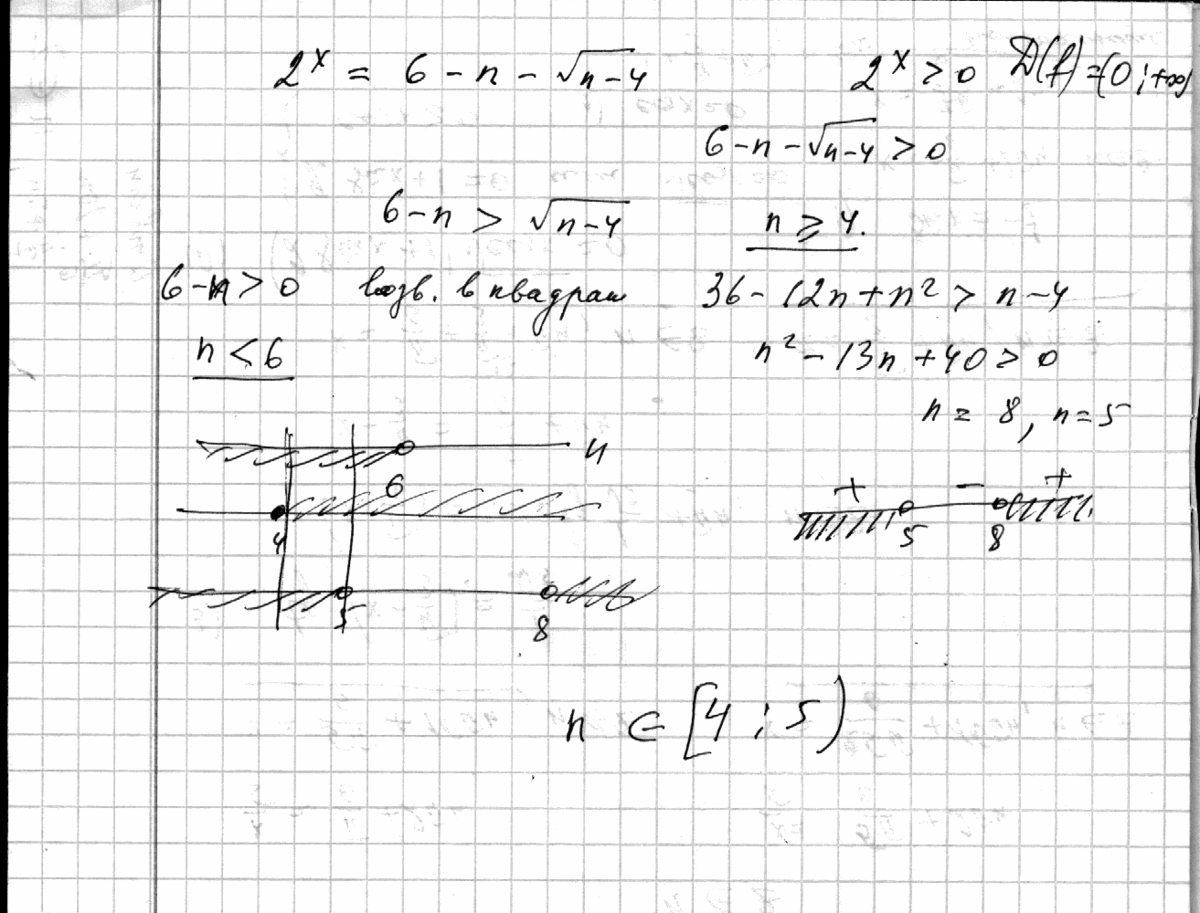 2^x = 6 - n - √(n-4)    2^x > 0    D(f) = (0 ; +∞)
6 - n - √(n-4) > 0
6 - n > √(n-4)    n ⩾ 4.
6 - n > 0    возв. в квадрат    36 - 12n + n² > n - 4
n < 6    n² - 13n + 40 > 0
n = 8, n = 5
6    n
4    + - +
5    8
5    8
n ∈ [4 ; 5)